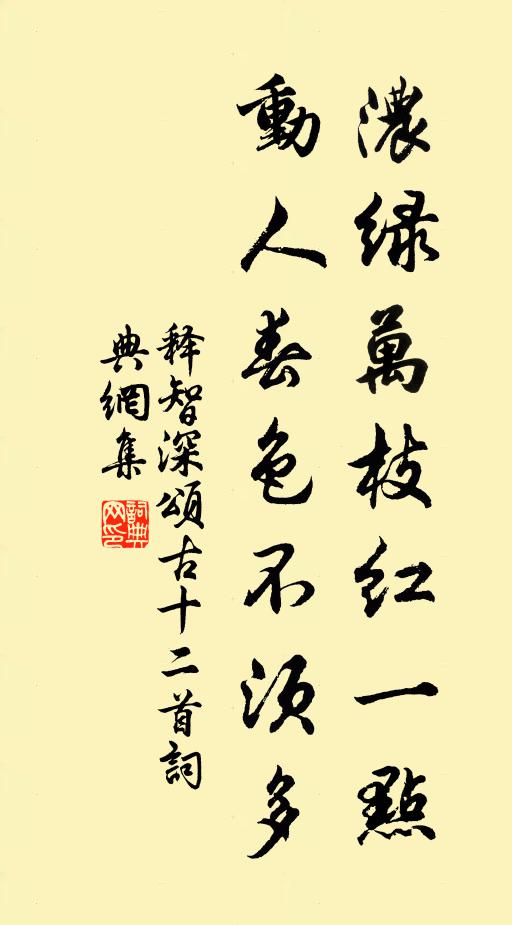 濃绿萬枝红一點
動人春色不须多
释智深頌古十二首詞
典網集
詞典
网印